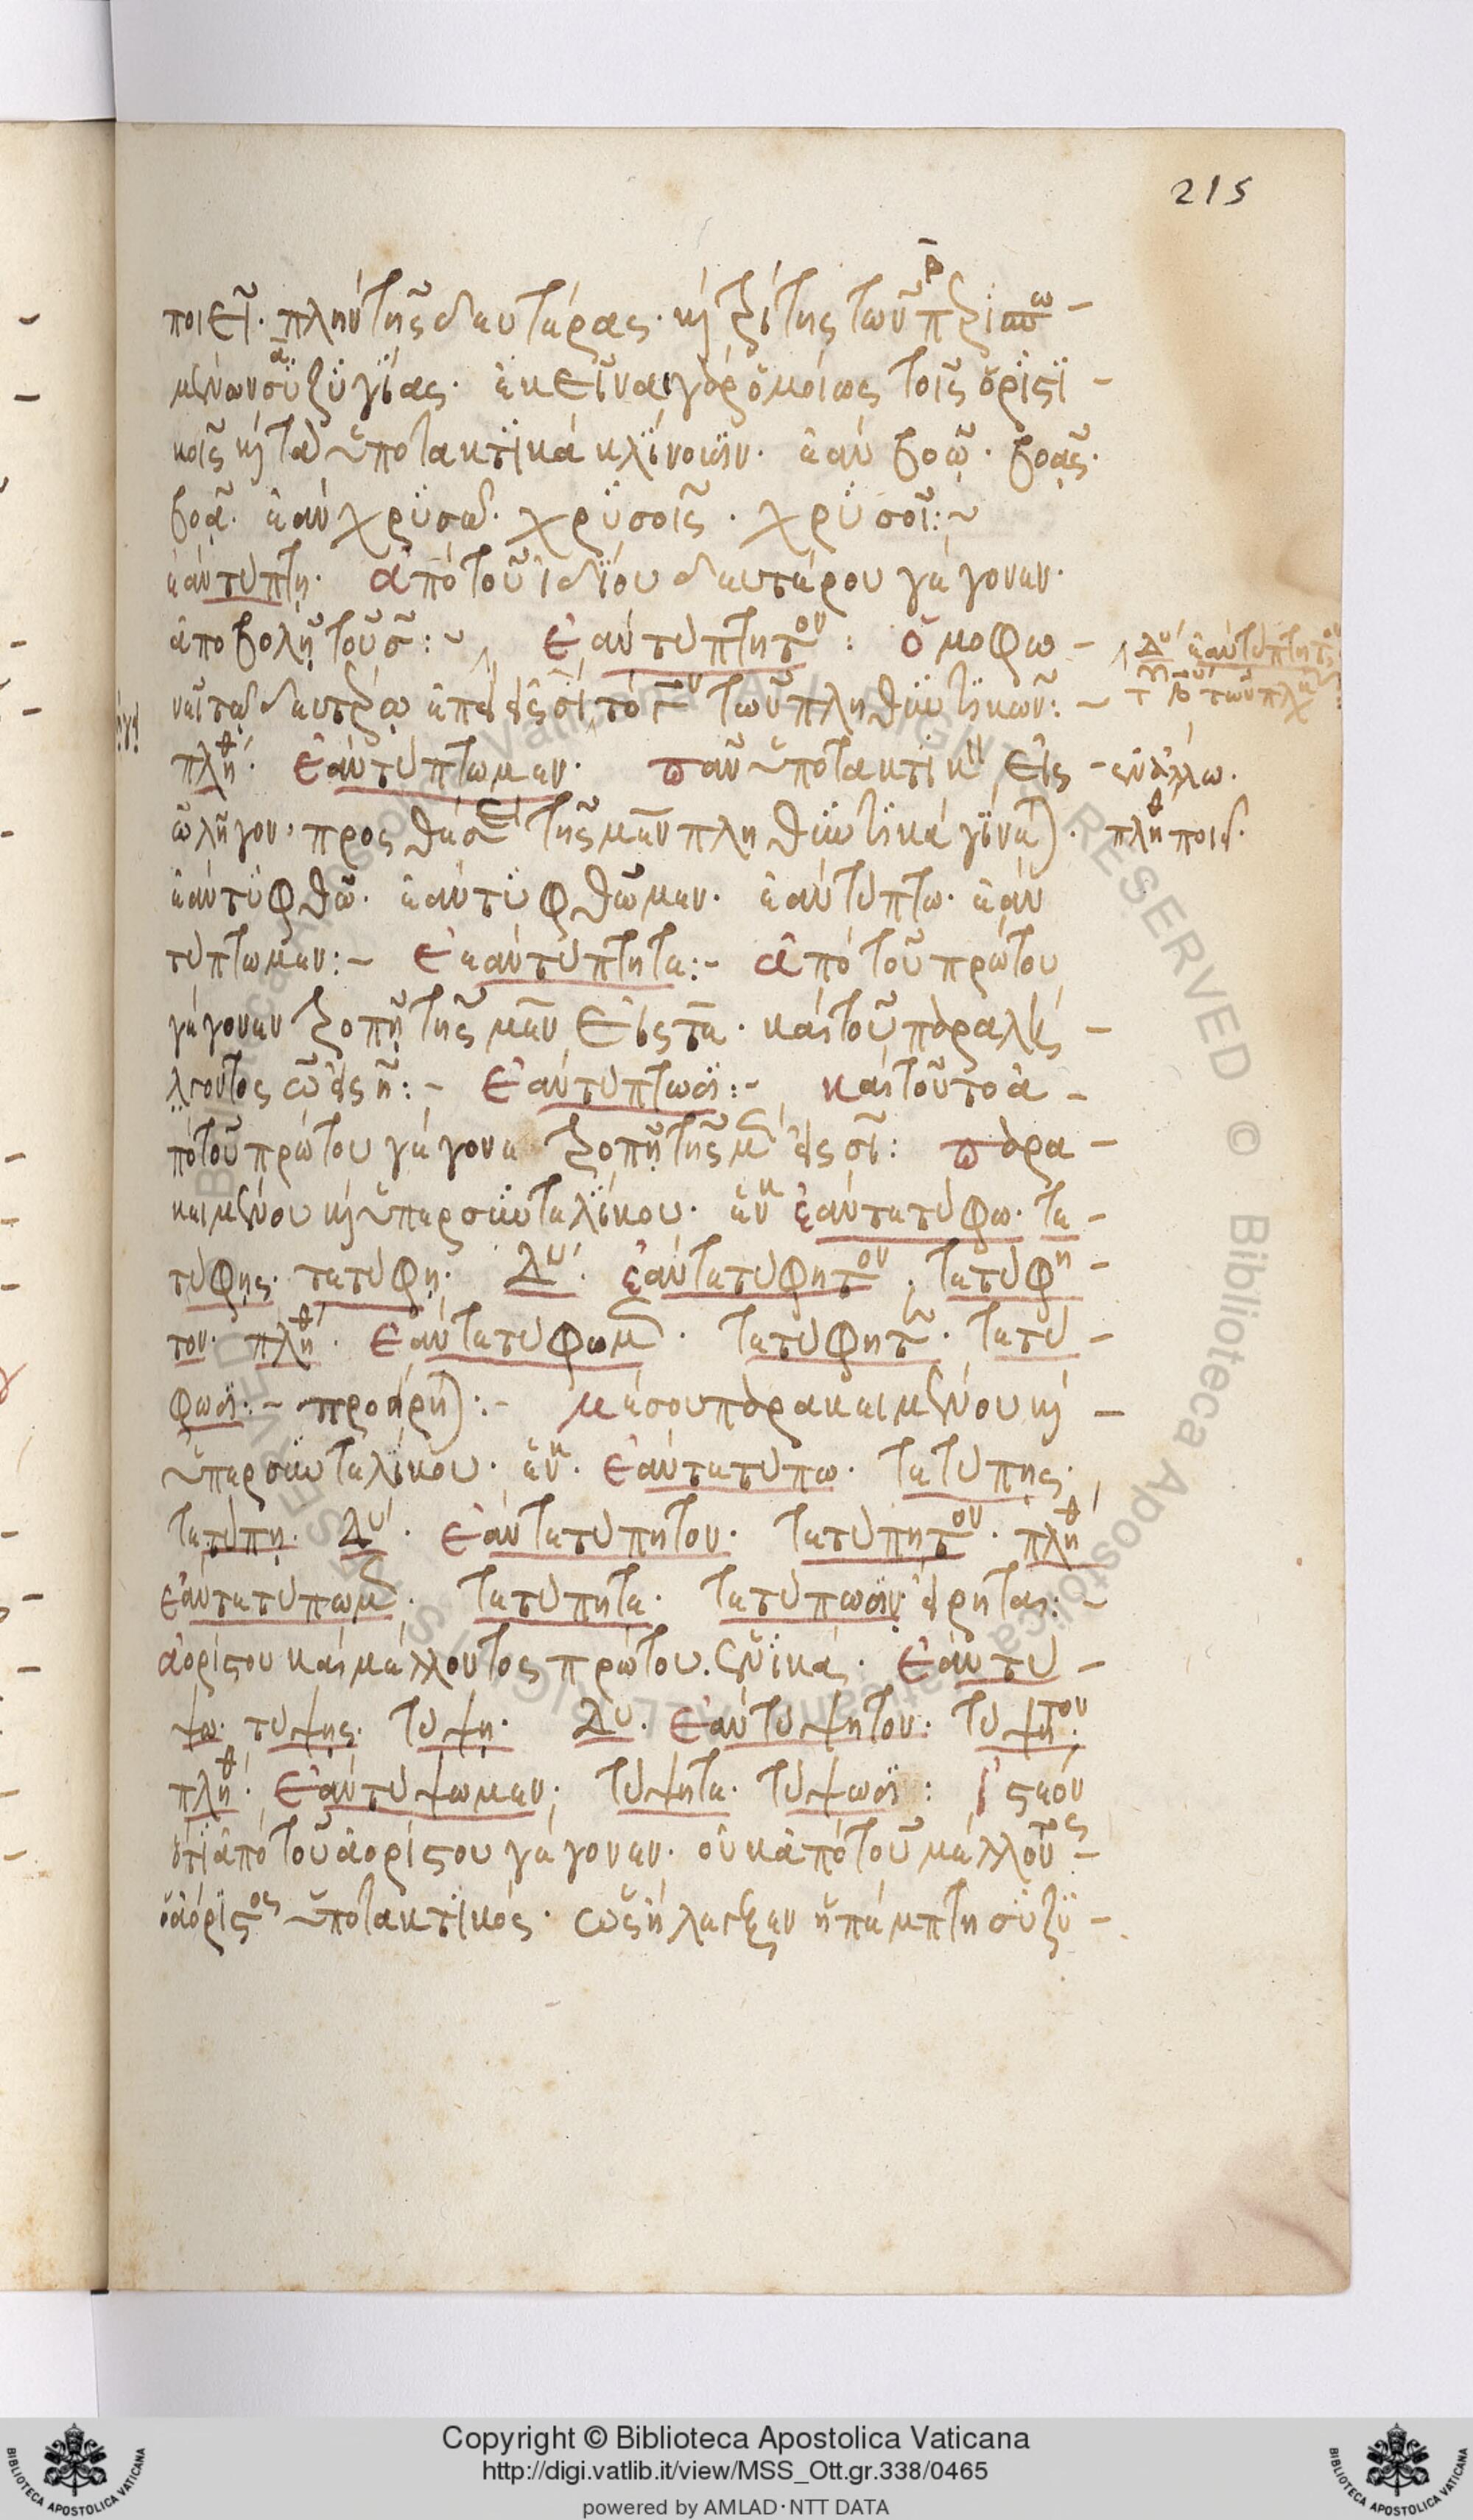 215
ποιεῖ· πλὴν τῆς δευτέρας· κὴ τρίτης τῶν περισπω-
μένων συζϋγΐας· ἐκεῖναι γὰρ ὁμοίως τοῖς ὁρϊστϊ-
κοῖς κὴ τὰ ὑποτακτϊκὰ κλΐνουσιν· ἐὰν βοῶ· βοᾷς·
βοᾷ· ἐὰν χρϋσῶ· χρϋσοῖς· χρϋσοῖ:~
ἐὰν τύπτῃ· ἀπὸ τοῦ ἰδΐου δευτέρου γέγονεν·
ἀποβολῇ τοῦ σ̄:~ ἐὰν τύπτητον: ὁμοφω-
νεῖ τῷ δευτέρῳ ἐπεὶ
τῶν πληθυντικῶν:~
πλη· ἐὰν τύπτωμεν· πᾶν ὑποτακτικὸν εἰς
ὦ λῆγον· προσθέσει τῆς μεν πληθυντικὰ γΐνεται·
ἐὰν τυφθῶ· ἐὰν τυφθῶμεν· ἐὰν τύπτω· ἐὰν
τύπτωμεν:- ἐὰν τύπτητε:- ἀπὸ τοῦ πρώτου
γέγονεν τροπῇ τῆς μεν εἰς τε· καὶ τοῦ παραλή-
γοντος ω εἰς η:- ἐὰν τύπτωσι:- καὶ τοῦτο ἀ-
πὸ τοῦ πρώτου γέγονε τροπῇ τῆς μεν εἰς σι: παρα-
κειμένου κὴ ὑπερσυντελΐκου· ἑνικ ἐὰν τετύφω· τε-
τύφῃς· τετύφῃ· Δυ· ἐὰν τετύφητον· τετύφη-
τον· πλη· ἐὰν τετύφωμεν· τετύφητε· τετύ-
φωσι:- προείρηται:- μέσου παρακειμένου κὴ
ὑπερσυντελΐκου· ἑνικ· ἐὰν τετύπω· τετύπῃς·
τετύπῃ· Δυ· ἐὰν τετύπητον· τετύπητον· πλη
ἐὰν τετύπωμεν· τετύπητε· τετύπωσιν· εἴρηται:~
ἀορίστου καὶ μέλλοντος πρώτου· ἑνϊκά· ἐὰν τύ-
ψω· τύψῃς· τύψῃ· Δυ· ἐὰν τύψητον· τύψητον·
πλη· ἐὰν τύψωμεν· τύψητε· τύψωσι: ἰστέον
ὅτϊ ἀπὸ τοῦ ἀορίστου γέγονεν· οὐκ ἀπὸ τοῦ μέλλοντος-
ὁ ἀόρϊστος ὑποτακτϊκός· ὡς ἤλεγξεν ἡ πέμπτη συζϋ-
Δυ ἐὰν τύπτητον
τῶν πλη
ἐν ἄλλω·
πλη ποιεῖ·
Copyright © Biblioteca Apostolica Vaticana
http://digi.vatlib.it/view/MSS_Ott.gr.338/0465
powered by AMLAD·NTT DATA
BIBLIOTECA APOSTOLICA VATICANA
BIBLIOTECA APOSTOLICA VATICANA